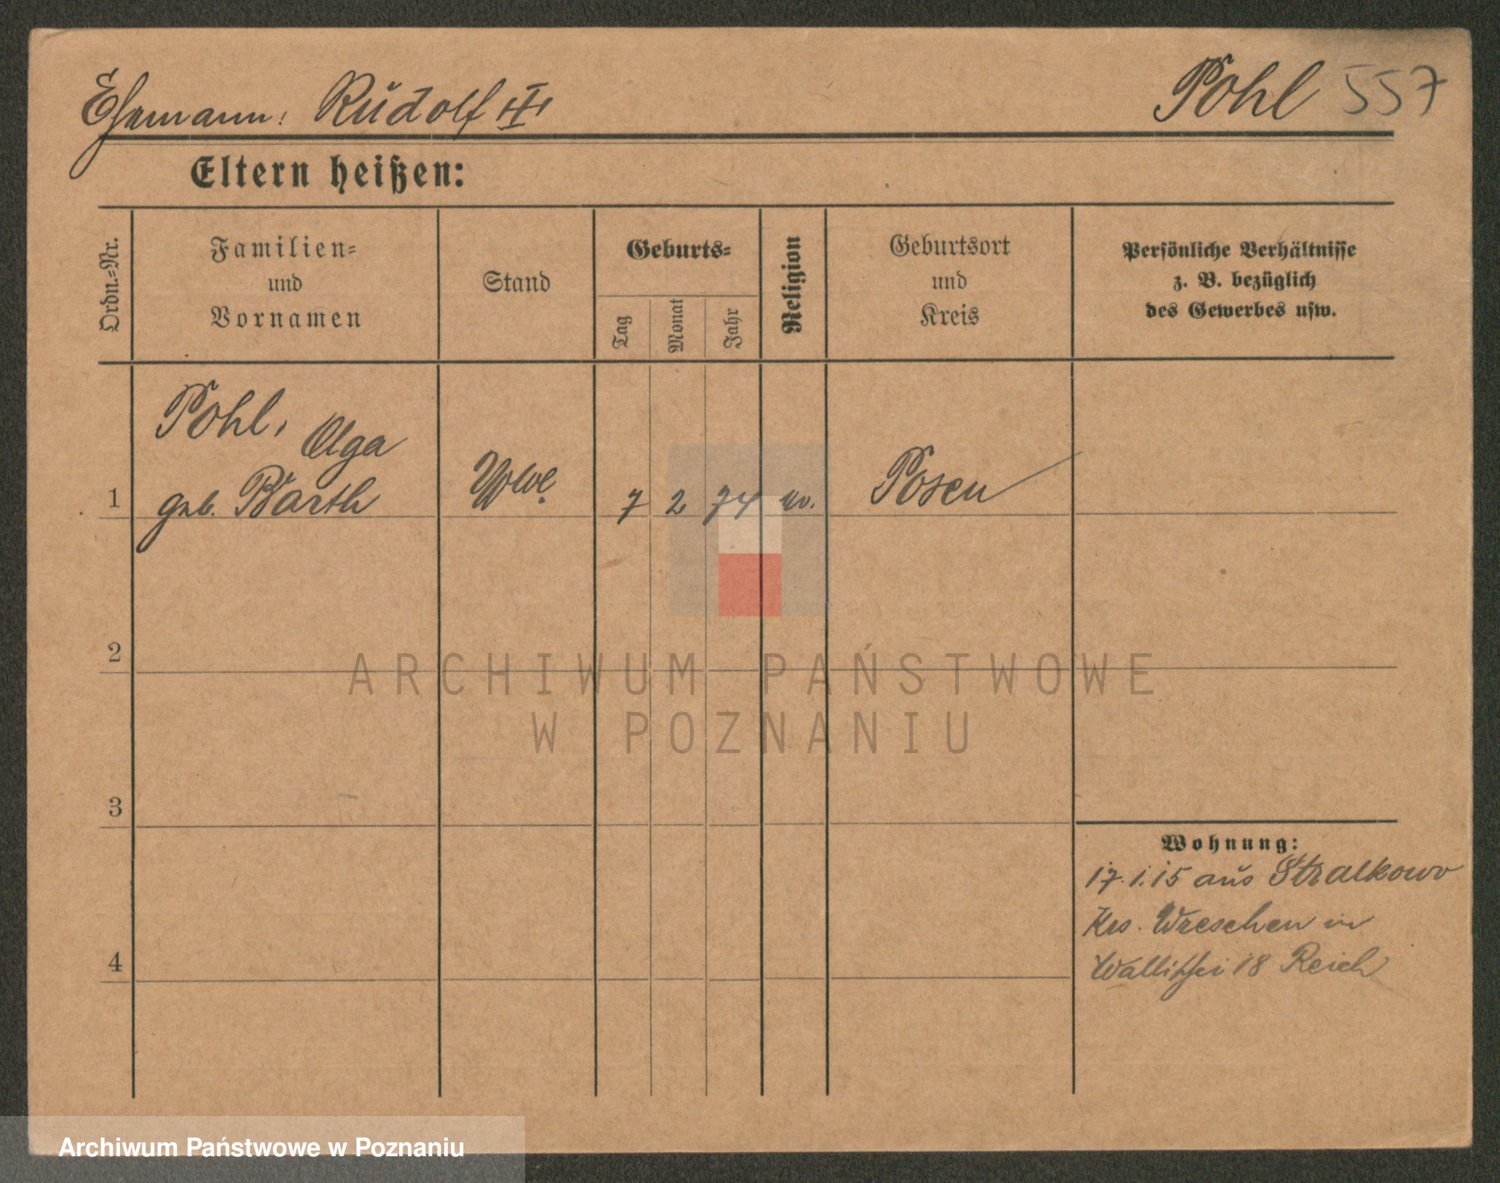 Ehemann: Rudolf III Pohl 557
Eltern heißen:
Ordn.=Nr.
Familien=
und
Vornamen
Stand
Geburts=
Tag
Monat
Jahr
Religion
Geburtsort
und
Kreis
Persönliche Verhältnisse
z. B. bezüglich
des Gewerbes usw.
Pohl, Olga
1 geb. Barth Wwe. 7 2 74 ev. Posen
2
3
4
Wohnung:
17.1.15 aus Stralkowo
Krs. Wreschen in
18 Reich
ARCHIWUM PAŃSTWOWE
W POZNANIU
Archiwum Państwowe w Poznaniu